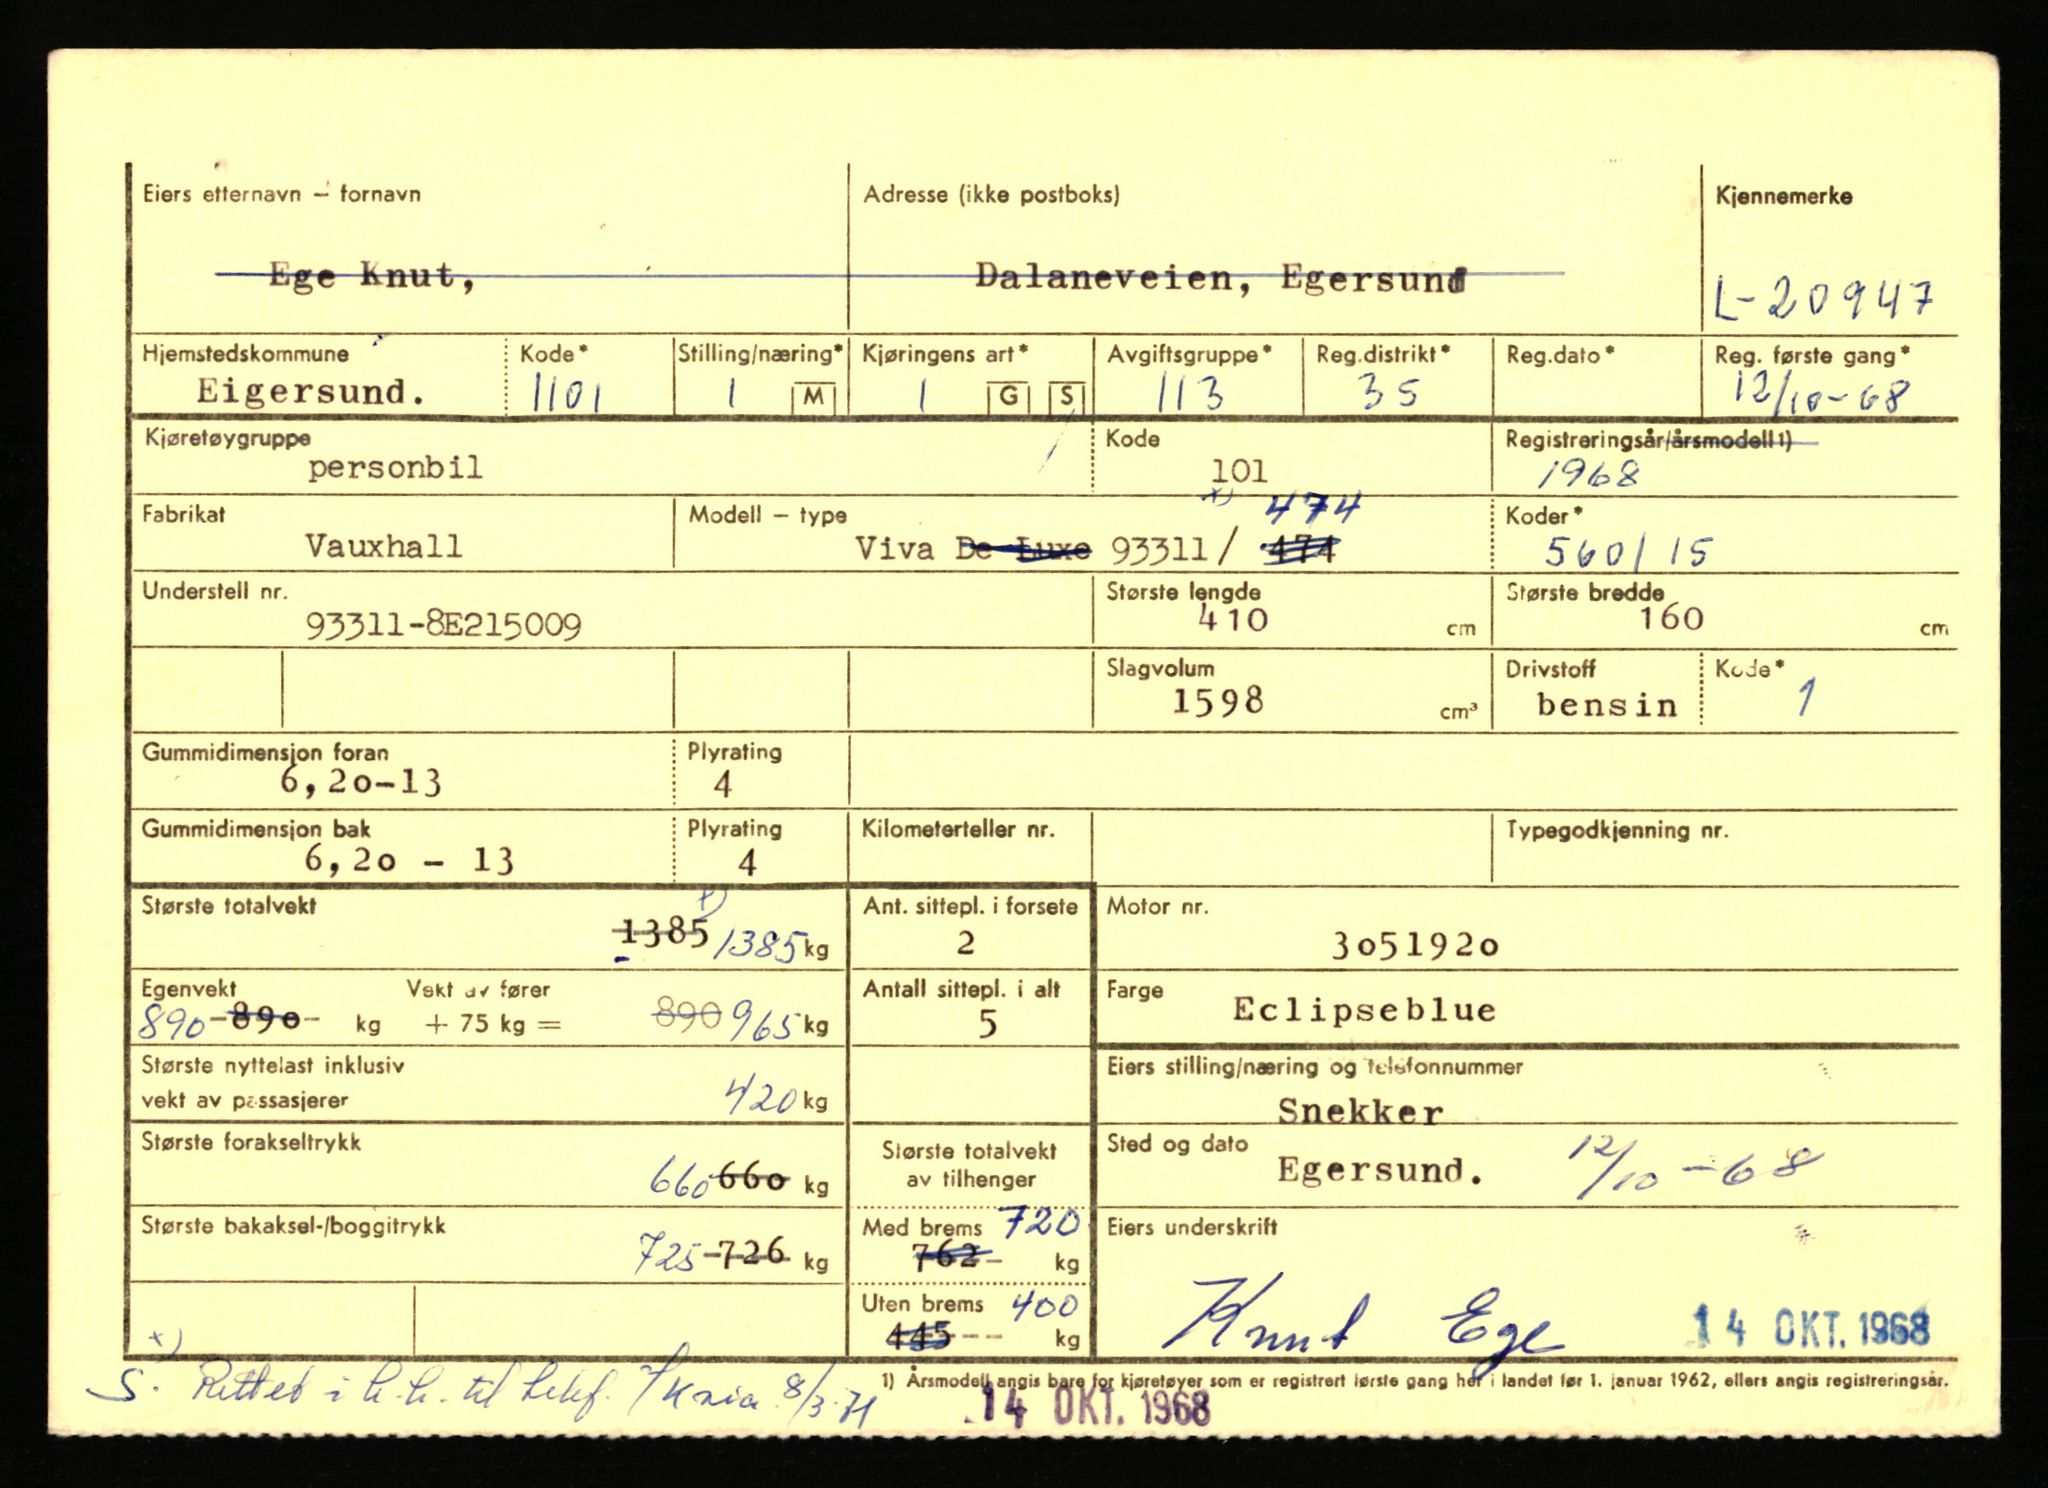 Eiers etternavn – fornavn Adresse (ikke postboks) Kjennemerke
Ege Knut, Dalaneveien, Egersund L-20947
Hjemstedskommune Kode* Stilling/næring* Kjøringens art* Avgiftsgruppe* Reg.distrikt* Reg.dato* Reg. første gang*
Eigersund. 1101 1 M 1 G S 113 35 12/10-68
Kjøretøygruppe Kode Registreringsår/årsmodell 1)
personbil 101 1968
x) 474
Fabrikat Modell – type Koder*
Vauxhall Viva De Luxe 93311/ 474 560/15
Understell nr. Største lengde Største bredde
93311-8E215009 410 cm 160 cm
Slagvolum Drivstoff Kode*
1598 cm³ bensin 1
Gummidimensjon foran Plyrating
6,20-13 4
Gummidimensjon bak Plyrating Kilometerteller nr. Typegodkjenning nr.
6,20 - 13 4
Største totalvekt x) Ant. sittepl. i forsete Motor nr.
1385 1385 kg 2 3051920
Egenvekt Vekt av fører Antall sittepl. i alt Farge
890 -890- kg + 75 kg = 890 965 kg 5 Eclipseblue
Største nyttelast inklusiv Eiers stilling/næring og telefonnummer
vekt av passasjerer 420 kg Snekker
Største forakseltrykk Største totalvekt Sted og dato
660 660 kg av tilhenger Egersund. 12/10-68
Største bakaksel-/boggitrykk Med brems 720 Eiers underskrift
725 -726 kg 762- kg
Uten brems 400 Knut Ege 14 OKT. 1968
445--- kg
x)
S. Rettet i h.h. til bekf. 8/3-71
1) Årsmodell angis bare for kjøretøyer som er registrert første gang her i landet før 1. januar 1962, ellers angis registreringsår.
14 OKT. 1968